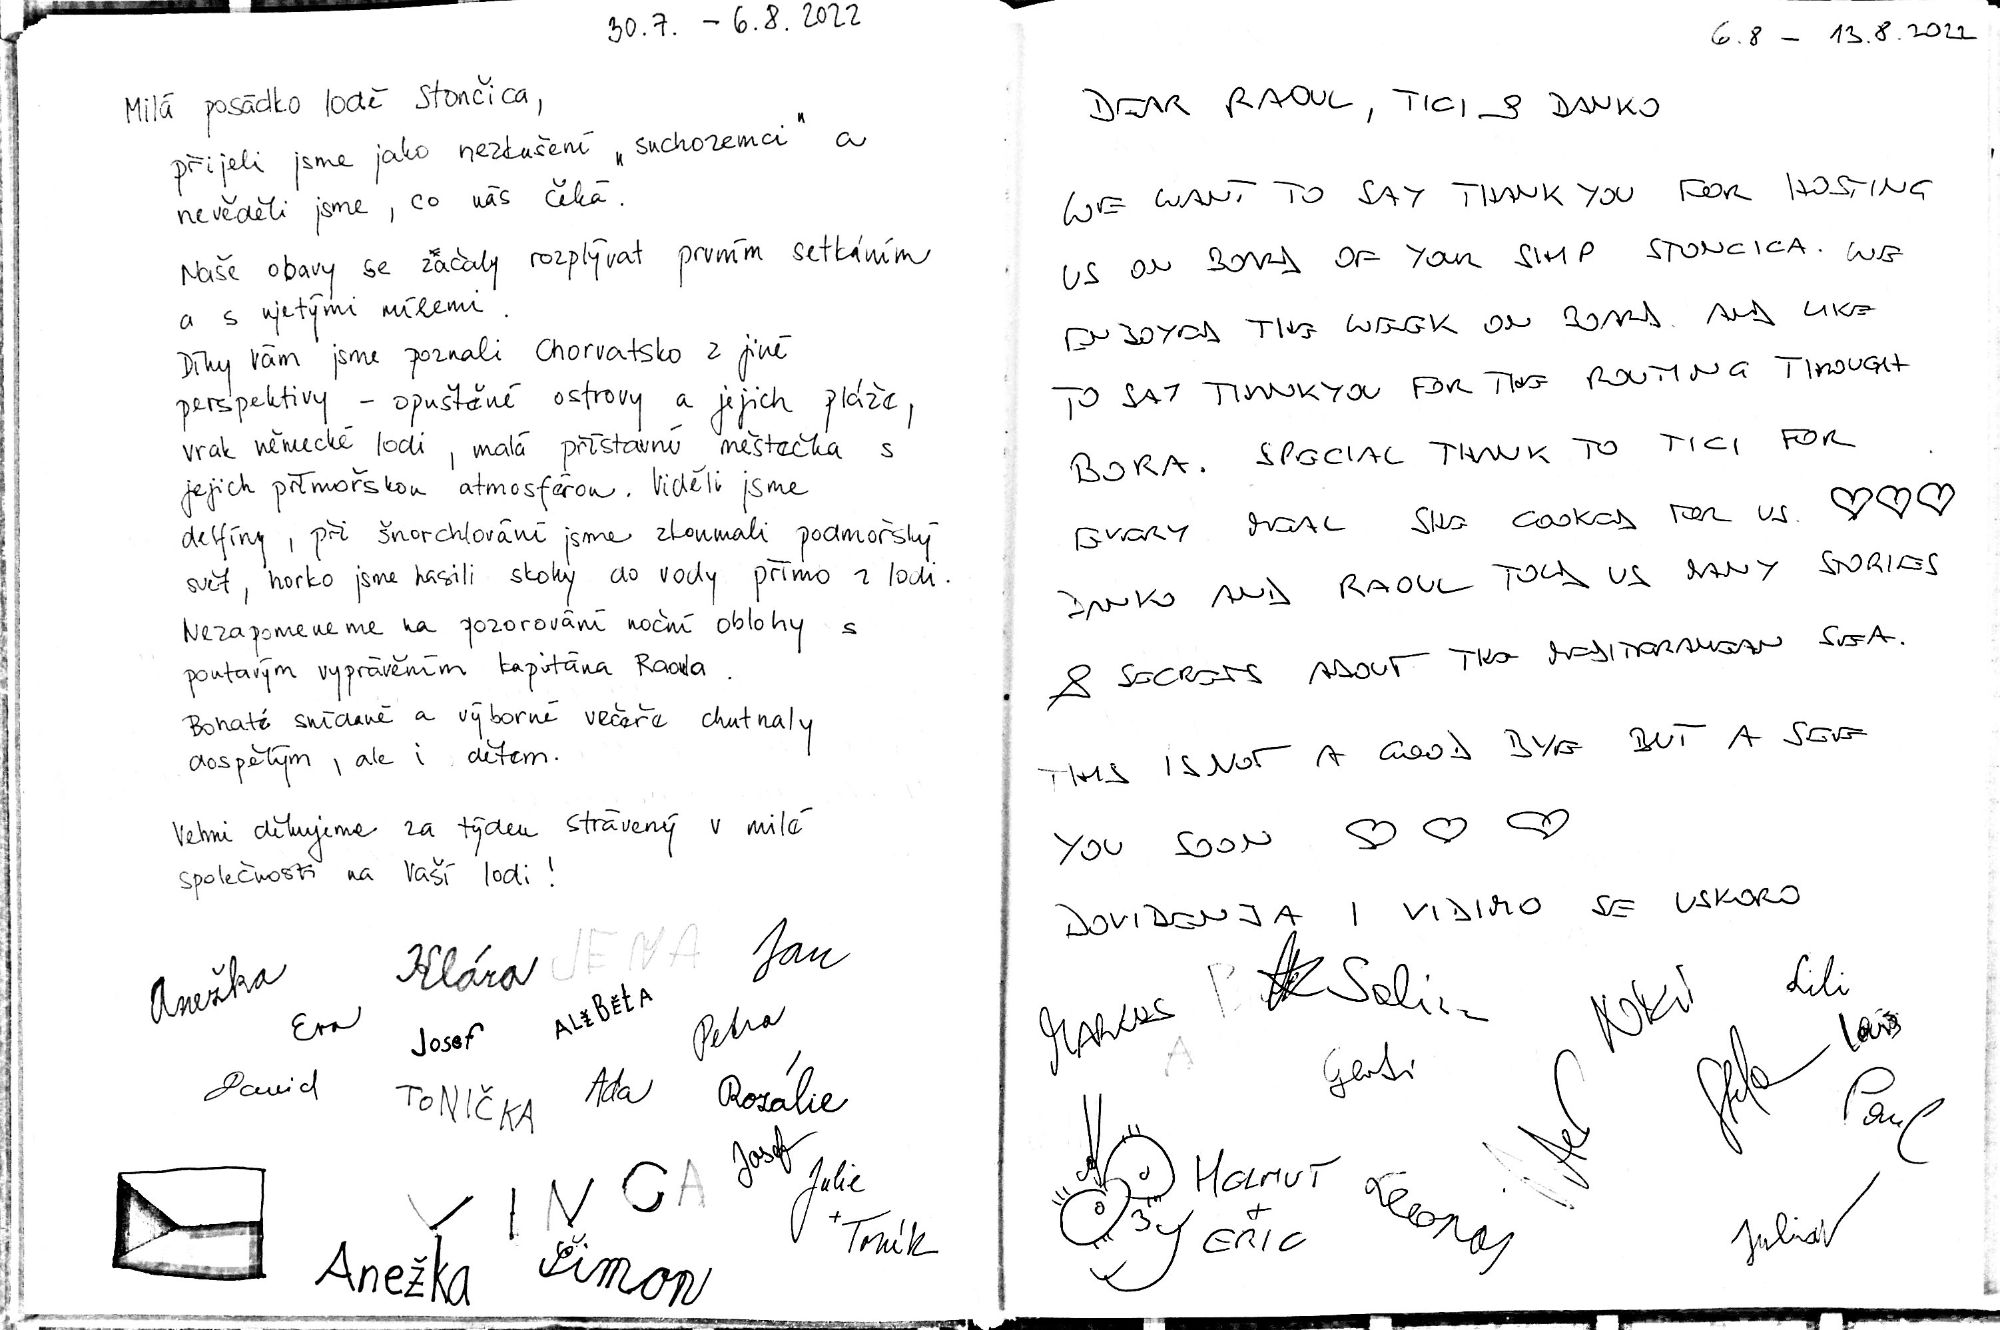 30.7. – 6.8.2022
Milá posádko lodě Stončica,
přijeli jsme jako nezkušení „suchozemci" a
nevěděli jsme, co nás čeká.
Naše obavy se začaly rozplývat prvním setkáním
a s ujetými mílemi.
Díky Vám jsme poznali Chorvatsko z jiné
perspektivy – opuštěné ostrovy a jejich pláže,
vrak německé lodi, malá přístavní městečka s
jejich přímořskou atmosférou. Viděli jsme
delfíny, při šnorchlování jsme zkoumali podmořský
svět, horko jsme hasili skoky do vody přímo z lodi.
Nezapomeneme na pozorování noční oblohy s
poutavým vyprávěním kapitána Raoula.
Bohaté snídaně a výborné večeře chutnaly
dospělým, ale i dětem.
Velmi děkujeme za týden strávený v milé
společnosti na Vaší lodi!
Anežka Klára JEMA Jan
Eva Josef ALžBĚTA Petra
David ToNIČKA Ada Rozálie
VINCA Josef Julie
+ Toník
Anežka Šimon
6.8 – 13.8.2022
DEAR RAOUL, TICI & DANKO
WE WANT TO SAY THANK YOU FOR HOSTING
US ON BOARD OF YOUR SHIP STONCICA. WE
ENJOYED THE WEEK ON BOARD. AND LIKE
TO SAY THANKYOU FOR THE ROUTING THOUGH
BORA. SPECIAL THANK TO TICI FOR
EVERY MEAL SHE COOKED FOR US. ♡♡♡
DANKO AND RAOUL TOLD US MANY STORIES
& SECRETS ABOUT THE MEDITERRANEAN SEA.
THIS IS NOT A GOOD BYE BUT A SEE
YOU SOON ♡ ♡ ♡
DOVIDENJA I VIDIMO SE USKORO
MARKUS Lili
Gerti Paul
HELMUT
+
ERIC
Julian